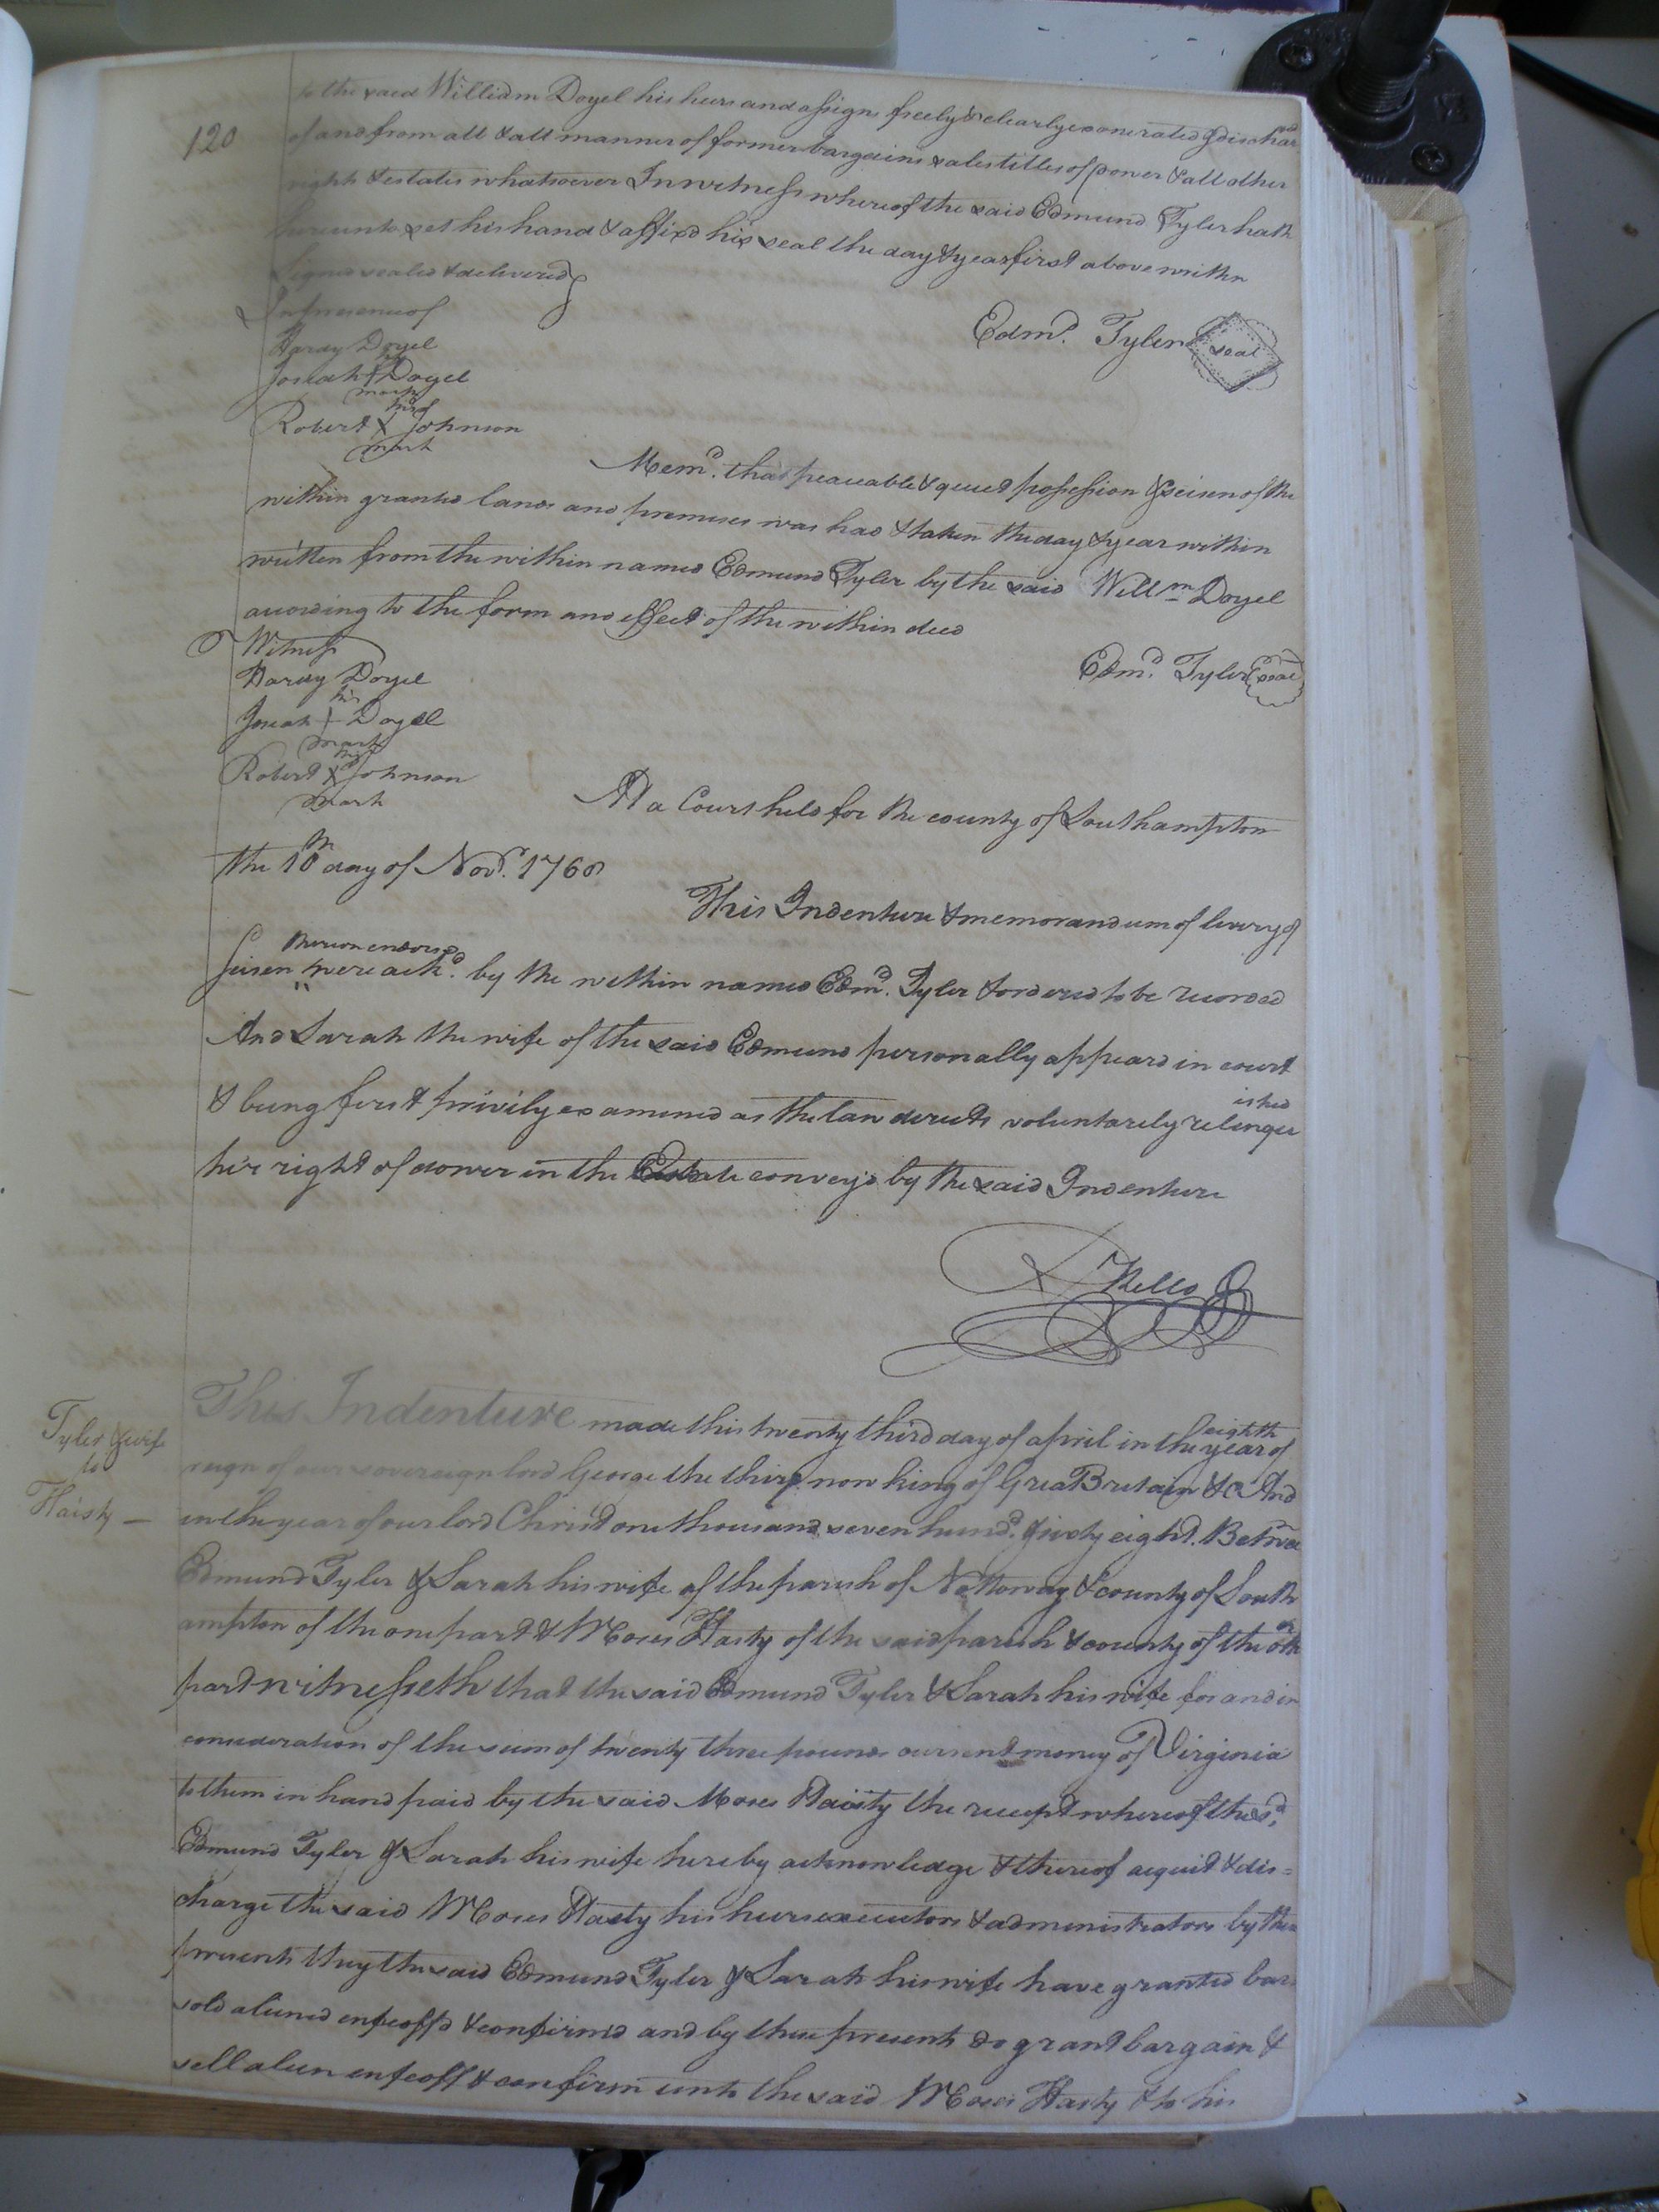 120
to the said William Doyel his heirs and assigns freely & clearly exonerated & dischar ged
of and from all & all manner of former bargains sales titles of power & all other
right & estates whatsoever In witness whereof the said Edmund Tyler hath
hereunto set his hand & affixd his seal the day & year first above written
Signed sealed & delivered
In presence of
Edmd. Tyler seal
Hardy Doyel
his
Josiah + Doyel
mark
his
Robert X Johnson
mark
Memd. that peaceable & quiet possession & seisen of the
within granted lands and premises was had & taken the day & year within
written from the within named Edmund Tyler by the said Willm Doyel
according to the form and effect of the within deed
Witness
Edmd. Tyler seal
Hardy Doyel
his
Josiah + Doyel
mark
his
Robert X Johnson
mark
At a Court held for the county of Southampton
the 10th day of Novr. 1768
This Indenture & memorandum of livery of
thereon endorsd
Seisen were ackd. by the within named Edmd. Tyler & ordered to be recorded
And Sarah the wife of the said Edmund personally appeard in court
ished
& being first privily examined as the law directs voluntarily relinqu
her right of dower in the Estate convey'd by the said Indenture
R Kello
Tyler & wife
to
Haisty —
eighth
This Indenture made this twenty third day of april in the year of
reign of our sovereign lord George the third now king of Grea Britain &c And
in the year of our lord Christ one thousand seven hund. & sixty eight. Betwee
Edmund Tyler & Sarah his wife of the parish of Nottoway & county of South
ampton of the one part & Moses Hasty of the said parish & county of the oth er
part witnesseth that the said Edmund Tyler & Sarah his wife for and in
consideration of the sum of twenty three pounds current money of Virginia
to them in hand paid by the said Moses Haisty the receipt whereof the sd.
Edmund Tyler & Sarah his wife hereby acknowledge & thereof acquit & dis=
charge the said Moses Hasty his heirs executors & administrators by these
presents they the said Edmund Tyler & Sarah his wife have granted bar
sold aliened enfeoffd & confirmd and by these presents do grant bargain &
sell alien enfeoff & confirm unto the said Moses Hasty & to his